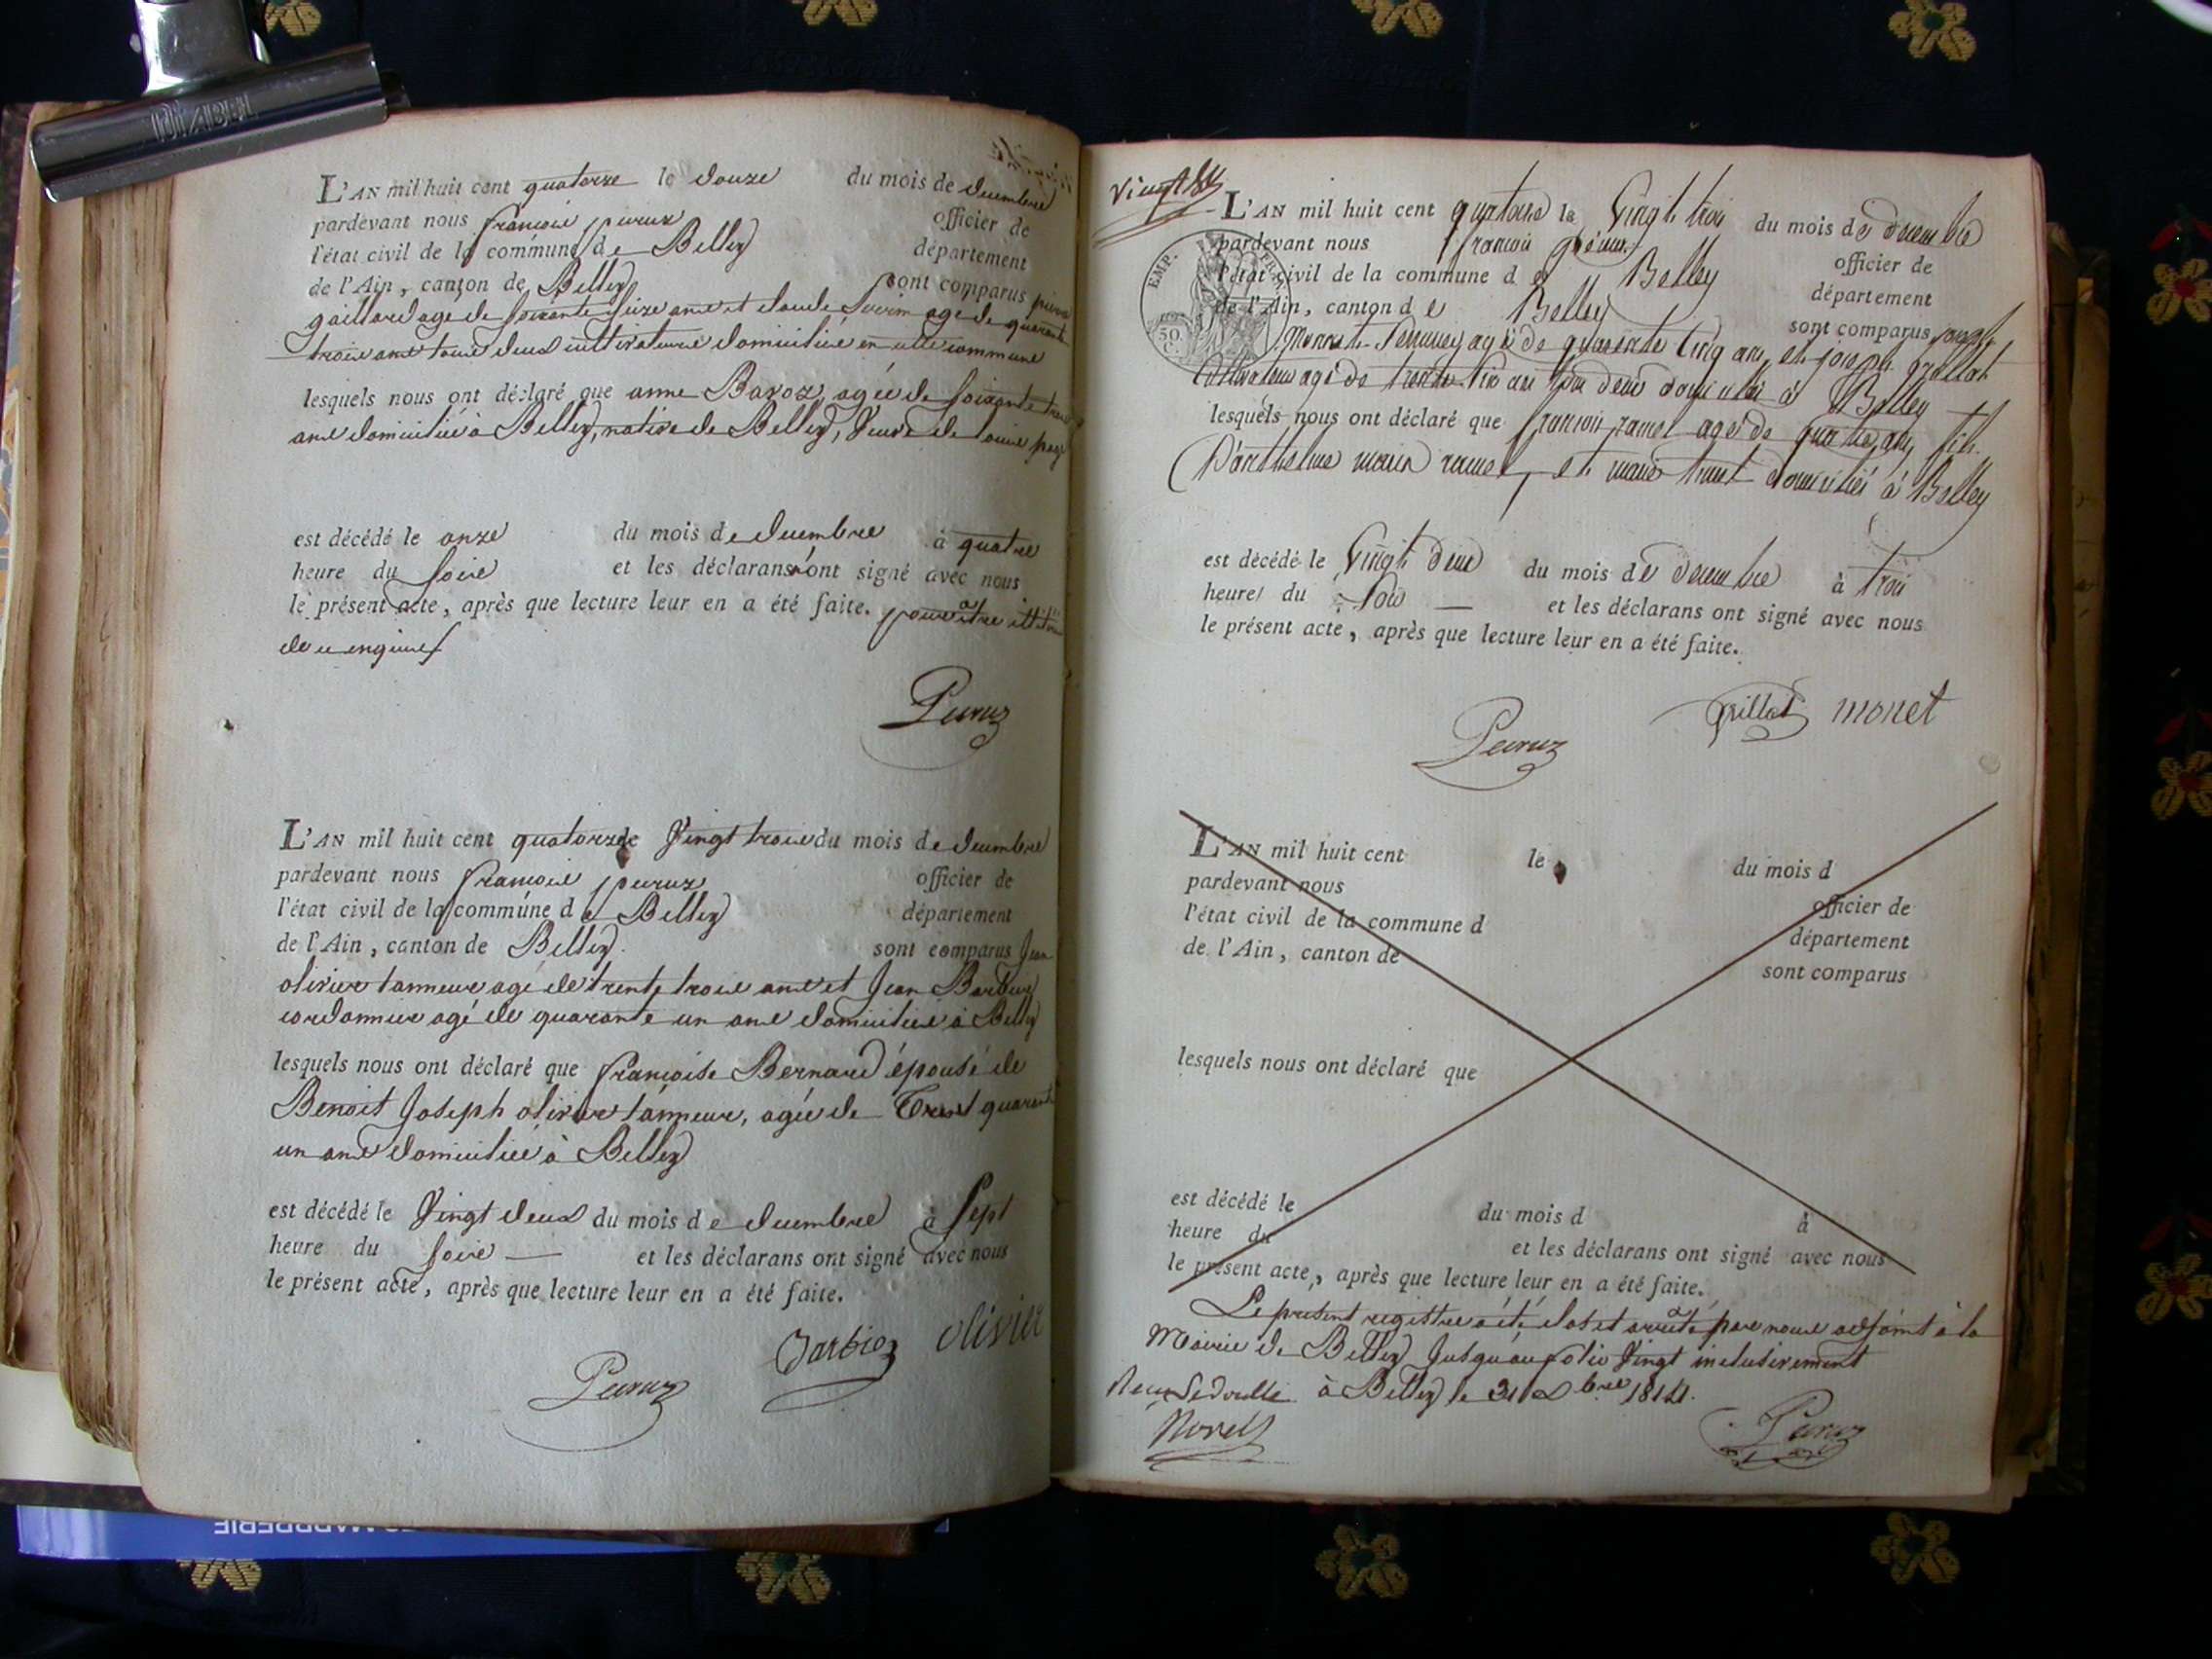 DIABEL
L'AN mil huit cent quatorze le douze du mois de decembre
pardevant nous françois peurux officier de
l'état civil de la commune de Belley département
de l'Ain, canton de Belley sont comparus pierre
gaillard age de soixante seize ans et claude age de quarante
trois ans tous deux cultivateurs domiciliés en cette commune
lesquels nous ont déclaré que anne Baroz, agée de soixante
ans domiciliée à Belley, native de Belley, veuve de
est décédé le onze du mois de decembre à quatre
heure du soir et les déclarans ont signé avec nous
le présent acte, après que lecture leur en a été faite. pour être
de ce enquis
Peuruz
L'AN mil huit cent quatorze le Vingt trois du mois de decembre
pardevant nous françois peurux officier de
l'état civil de la commune de Belley département
de l'Ain, canton de Belley sont comparus Jean
olivier tanneur agé de trente trois ans et Jean Barbier
cordonnier agé de quarante un ans domiciliés à Belley
lesquels nous ont déclaré que françoise Bernard épouse de
Benoit Joseph olivier tanneur, agée de quarante
un ans domiciliée à Belley
est décédé le Vingt deux du mois de decembre à sept
heure du soir et les déclarans ont signé avec nous
le présent acte, après que lecture leur en a été faite.
Barbier olivier
Peuruz
Vingt
L'AN mil huit cent quatorze le Vingt trois du mois de decembre
pardevant nous françois officier de
l'état civil de la commune de Belley département
de l'Ain, canton de Belley sont comparus joseph
EMP. FR.
50 C.
Monnet agé de quarante cinq ans, et joseph grillat
cultivateur agé de trente six ans tous deux domiciliés à Belley
lesquels nous ont déclaré que francois ramel agé de quatre ans, fils
D'anthelme marin ramel, et marie domiciliés à Belley
est décédé le Vingt deux du mois de decembre à trois
heure du soir et les déclarans ont signé avec nous
le présent acte, après que lecture leur en a été faite.
grillat monet
Peuruz
L'AN mil huit cent le du mois d
pardevant nous officier de
l'état civil de la commune d département
de l'Ain, canton de sont comparus
lesquels nous ont déclaré que
est décédé le du mois d à
heure du et les déclarans ont signé avec nous
le présent acte, après que lecture leur en a été faite.
Le present registre a été clos et arreté par nous adjoint à la
Mairie de Belley Jusqu'au folio Vingt inclusivement
à Belley le 31 Xbre 1814.
Peuruz